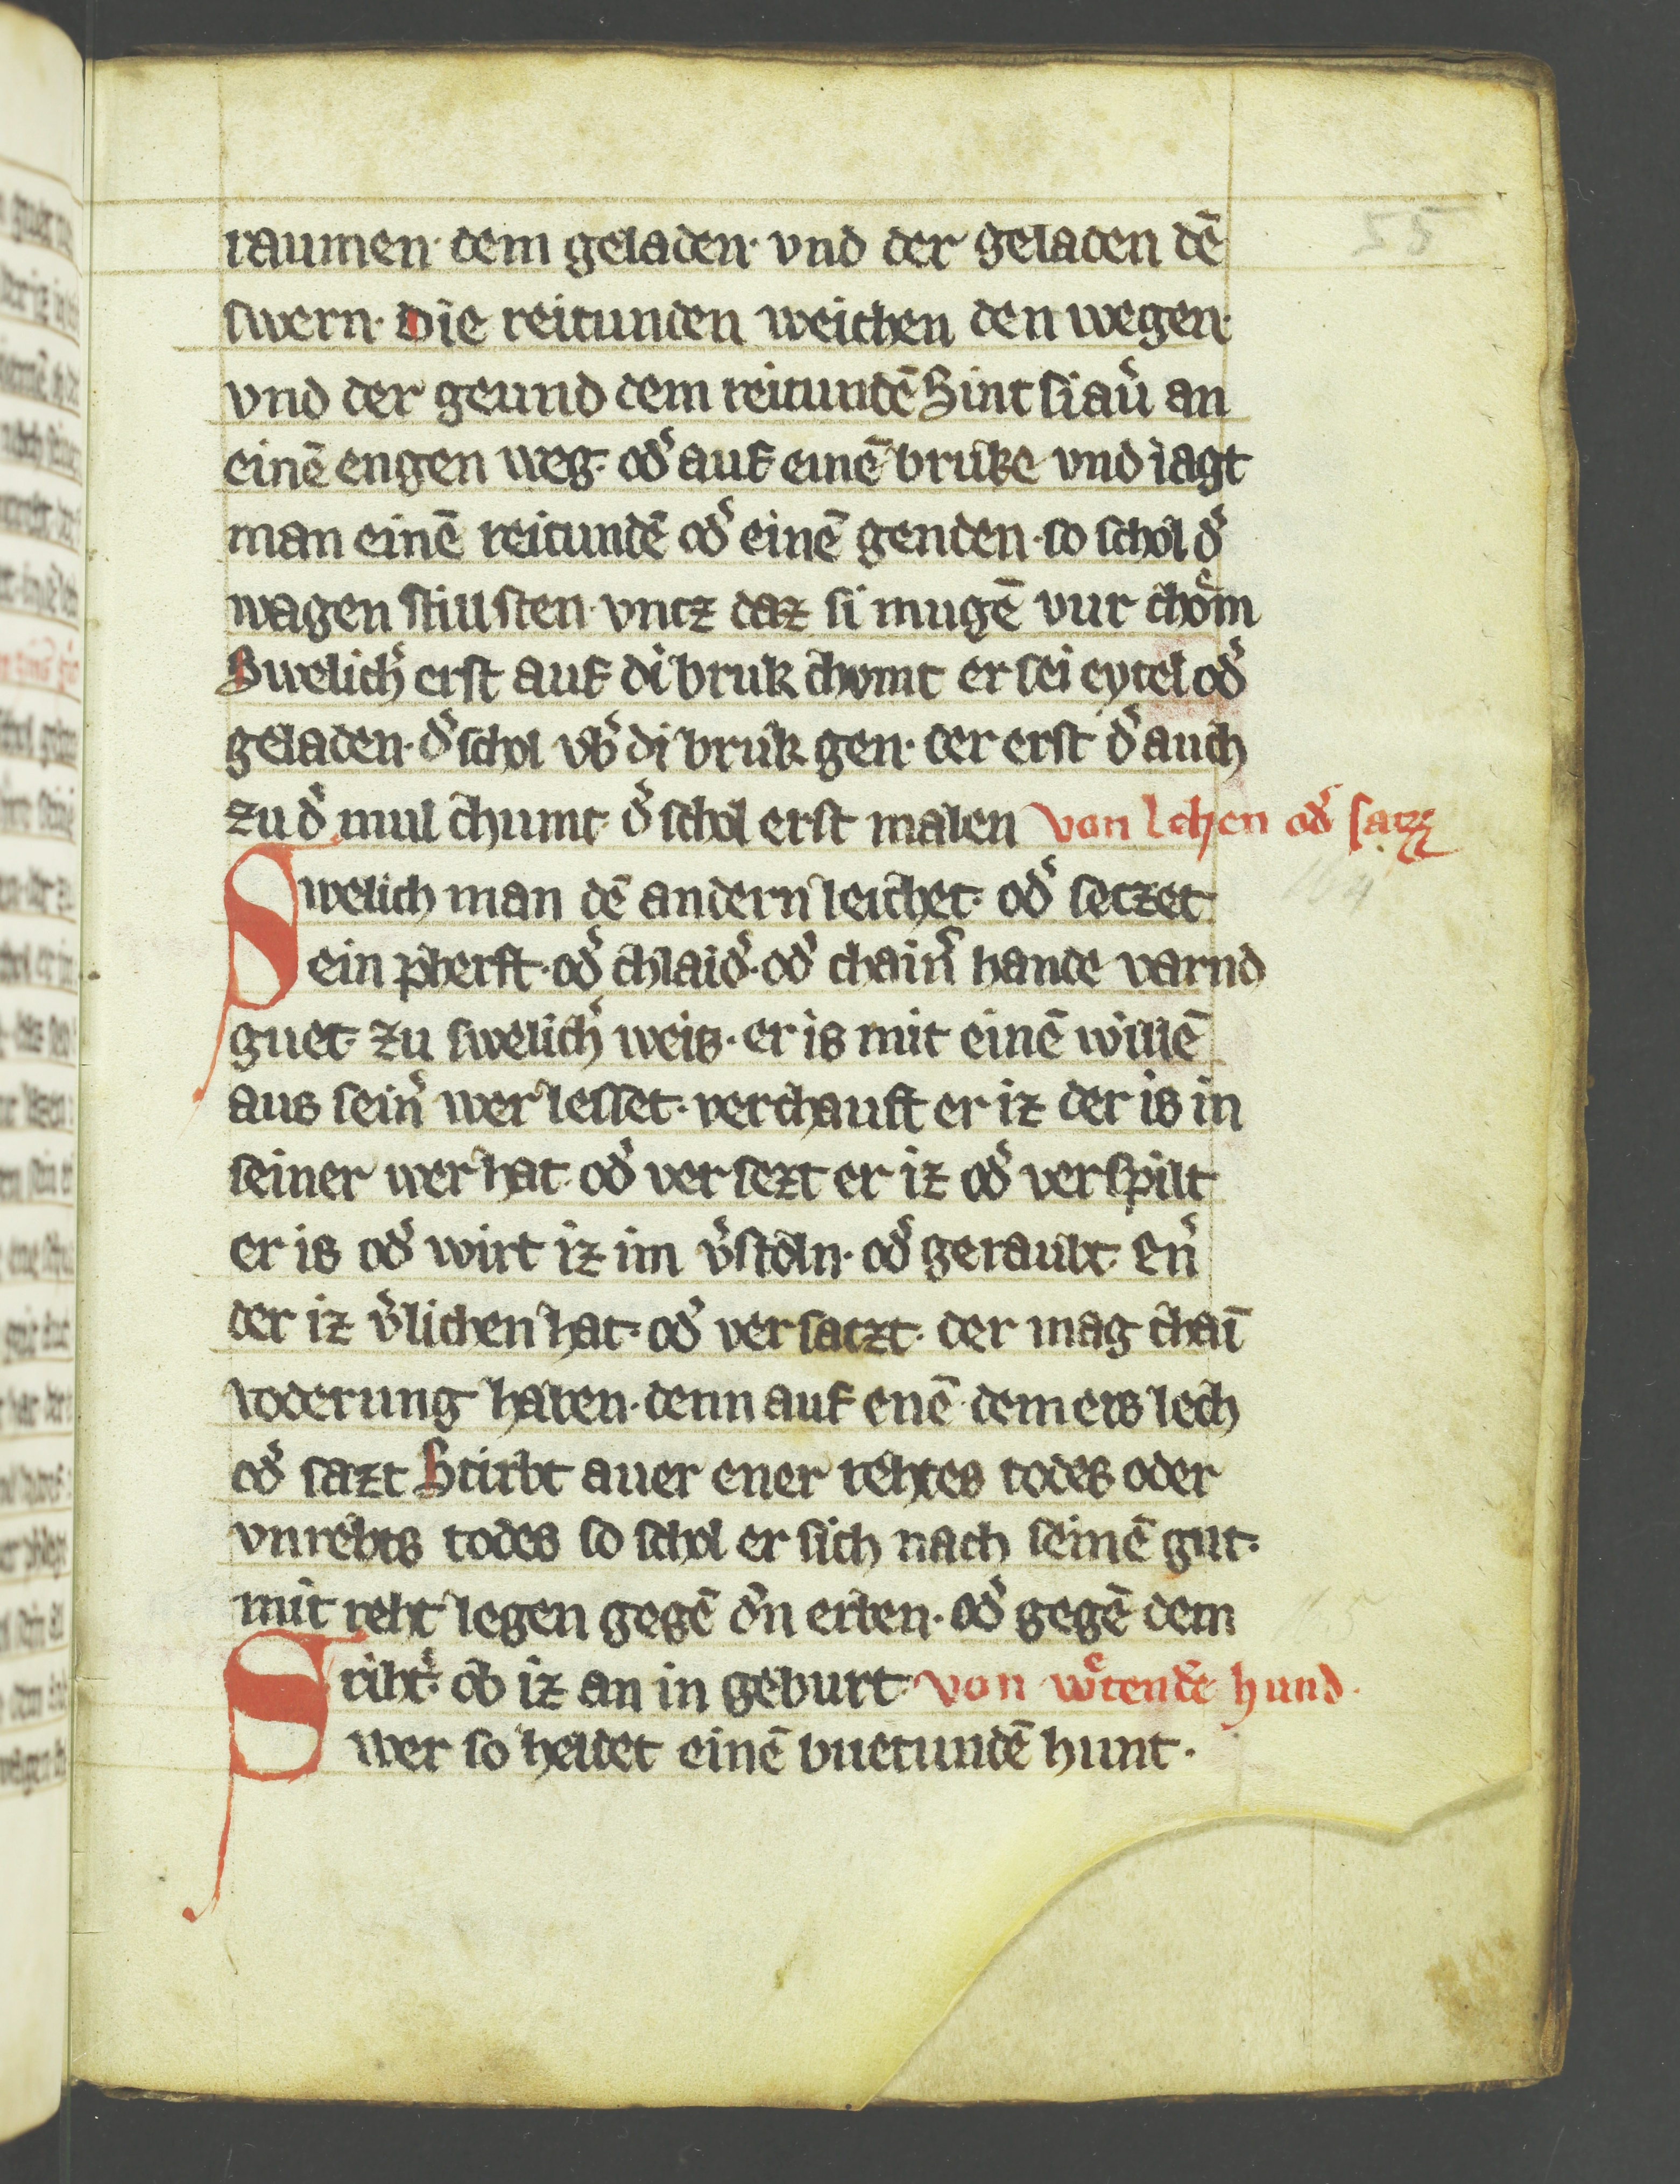 55
raumen· dem geladen· vnd der geladen dē
swern· Die reitunden weichen den wegen·
vnd der geund dem reitundē Sint si au̓ an
einē engen weg· od̓ auf einē bruke vnd iagt
man einē reitundē od̓ einē genden· so schol d̓
wagen still sten· vncz daz si mugē vur chom̄
Swelich̓ erst auf di bruk chvmt er sei eytel od̓
geladen· d̓ schol vb̓ di bruk gen· der erst d̓ auch
zu d̓ mul chumt· d̓ schol erst malen von lehen od̓ satz
Swelich man dē andern leichet· od̓ seczet
164
ein pherft· od̓ chlaid̓· od̓ chain̓ hande varnd
guet· zu swelich̓ weis· er is mit einē willē
aus sein̓ wer lesset· verchauft er iz der is in
seiner wer hat· od̓ ver sezt er iz od̓ verspilt
er is od̓ wirt iz im v̓stoln· od̓ geraubt· En̓
der iz v̓lichen hat· od̓ ver saczt· der mag chaī
voderung haben· denn auf enē dem ers lech
od̓ sazt Stirbt auer ener rehtes todes oder
vnrehts todes so schol er sich nach seinē gut·
mit reht legen gegē d̓n erben· od̓ gegē dem
165
riht̓· ob iz an in geburt· von wͤtendē hund·
Swer so heldet einē buetundē hunt·